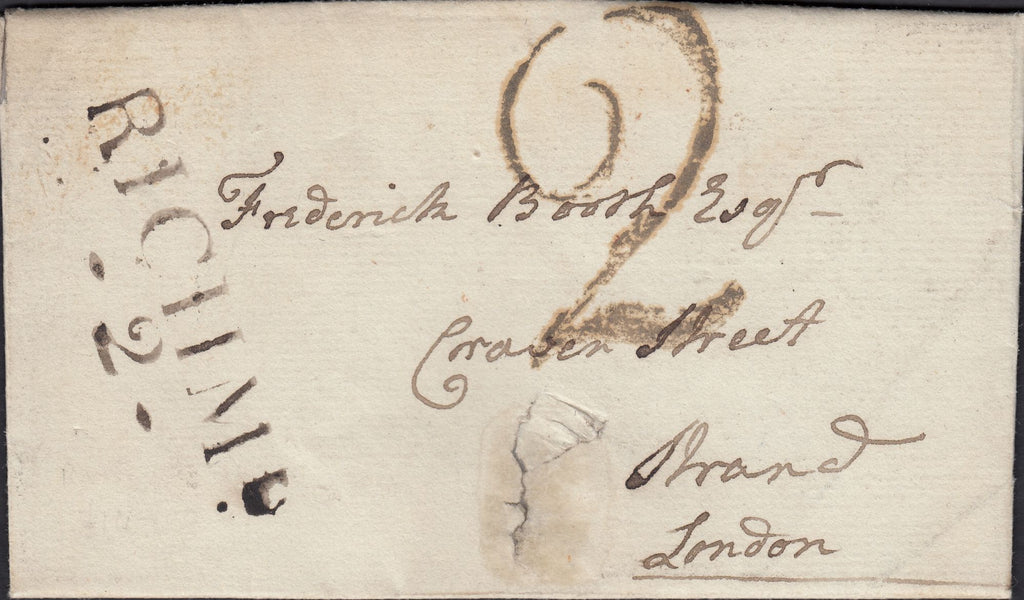 2
Frederick Booth Esqr
Craven Street
Strand
London
RICHMD.
- 2 -